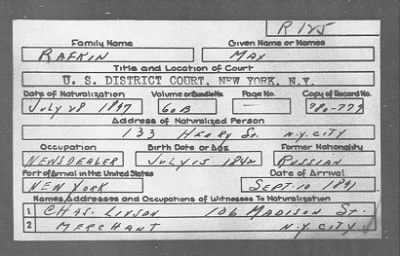 R 125
Family Name Given Name or Names
RAFKIN MAX
Title and Location of Court
U. S. DISTRICT COURT, NEW YORK, N.Y.
Date of Naturalization Volume or Bundle No. Page No. Copy of Record No.
JULY 28 1897 60B 780-779
Address of Naturalized Person
133 HENRY St. N.Y. CITY
Occupation Birth Date or Age Former Nationality
NEWSDEALER JULY 15 1842 RUSSIAN
Port of Arrival in the United States Date of Arrival
NEW YORK SEPT. 10 1891
Names, Addresses and Occupations of Witnesses To Naturalization
1 CHAS. LIVSON 106 MADISON ST.
2 MERCHANT N.Y. CITY